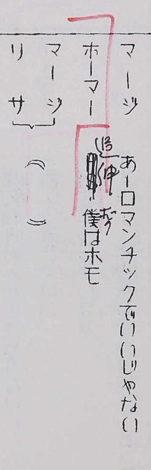 マージ あーロマンチックでいいじゃない
ホーマー 僕はホモ
ボク
マージ
リサ ( )